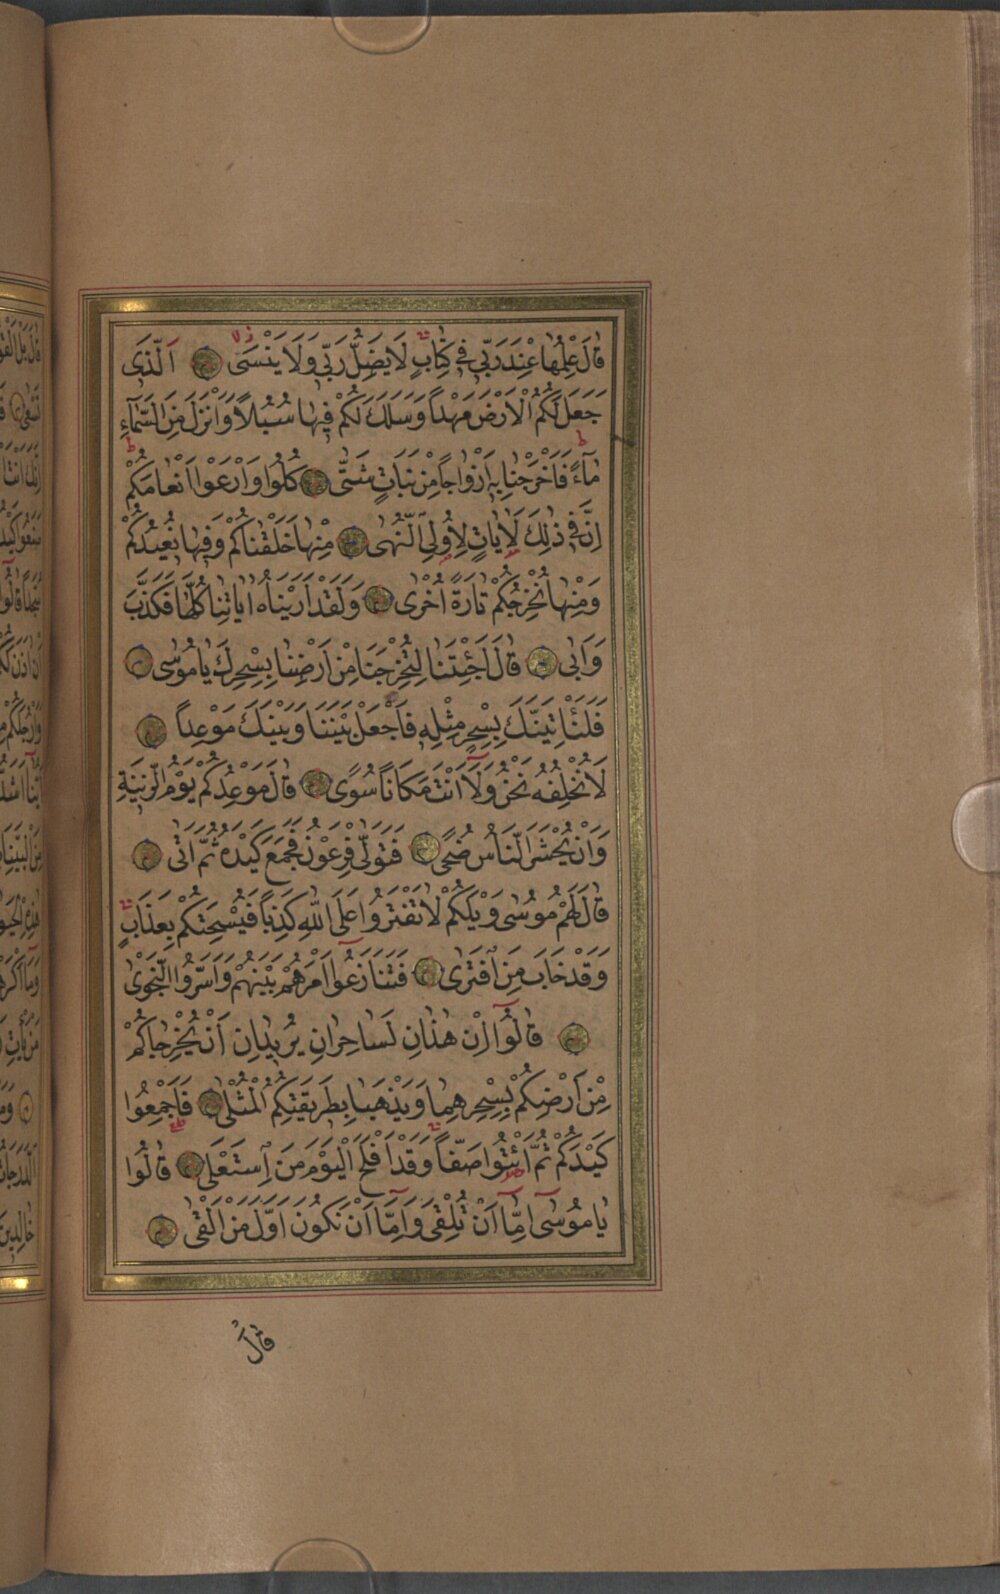 قَالَ عِلْمُهَا عِنْدَ رَبِّي فِي كِتَابٍ لَا يَضِلُّ رَبِّي وَلَا يَنْسَى اَلَّذِى
جَعَلَ لَكُمُ الْاَرْضَ مَهْدًا وَسَلَكَ لَكُمْ فِيهَا سُبُلًا وَاَنْزَلَ مِنَ السَّمَآءِ
مَآءً فَاَخْرَجْنَا بِهِ اَزْوَاجًا مِنْ نَبَاتٍ شَتّٰى كُلُوا وَارْعَوْا اَنْعَامَكُمْ
اِنَّ فِي ذٰلِكَ لَاٰيَاتٍ لِاُولِي النُّهٰى مِنْهَا خَلَقْنَاكُمْ وَفِيهَا نُعِيدُكُمْ
وَمِنْهَا نُخْرِجُكُمْ تَارَةً اُخْرٰى وَلَقَدْ اَرَيْنَاهُ اٰيَاتِنَا كُلَّهَا فَكَذَّبَ
وَاَبٰى قَالَ اَجِئْتَنَا لِتُخْرِجَنَا مِنْ اَرْضِنَا بِسِحْرِكَ يَا مُوسٰى
فَلَنَأْتِيَنَّكَ بِسِحْرٍ مِثْلِهِ فَاجْعَلْ بَيْنَنَا وَبَيْنَكَ مَوْعِدًا
لَا نُخْلِفُهُ نَحْنُ وَلَآ اَنْتَ مَكَانًا سُوًى قَالَ مَوْعِدُكُمْ يَوْمُ الزِّينَةِ
وَاَنْ يُحْشَرَ النَّاسُ ضُحًى فَتَوَلّٰى فِرْعَوْنُ فَجَمَعَ كَيْدَهُ ثُمَّ اَتٰى
قَالَ لَهُمْ مُوسٰى وَيْلَكُمْ لَا تَفْتَرُوا عَلَى اللّٰهِ كَذِبًا فَيُسْحِتَكُمْ بِعَذَابٍ
وَقَدْ خَابَ مَنِ افْتَرٰى فَتَنَازَعُٓوا اَمْرَهُمْ بَيْنَهُمْ وَاَسَرُّوا النَّجْوٰى
قَالُٓوا اِنْ هٰذَانِ لَسَاحِرَانِ يُرِيدَانِ اَنْ يُخْرِجَاكُمْ
مِنْ اَرْضِكُمْ بِسِحْرِهِمَا وَيَذْهَبَا بِطَرِيقَتِكُمُ الْمُثْلٰى فَاَجْمِعُوا
كَيْدَكُمْ ثُمَّ ائْتُوا صَفًّا وَقَدْ اَفْلَحَ الْيَوْمَ مَنِ اسْتَعْلٰى قَالُوا
يَا مُوسٰٓى اِمَّآ اَنْ تُلْقِيَ وَاِمَّآ اَنْ نَكُونَ اَوَّلَ مَنْ اَلْقٰى
قَالَ